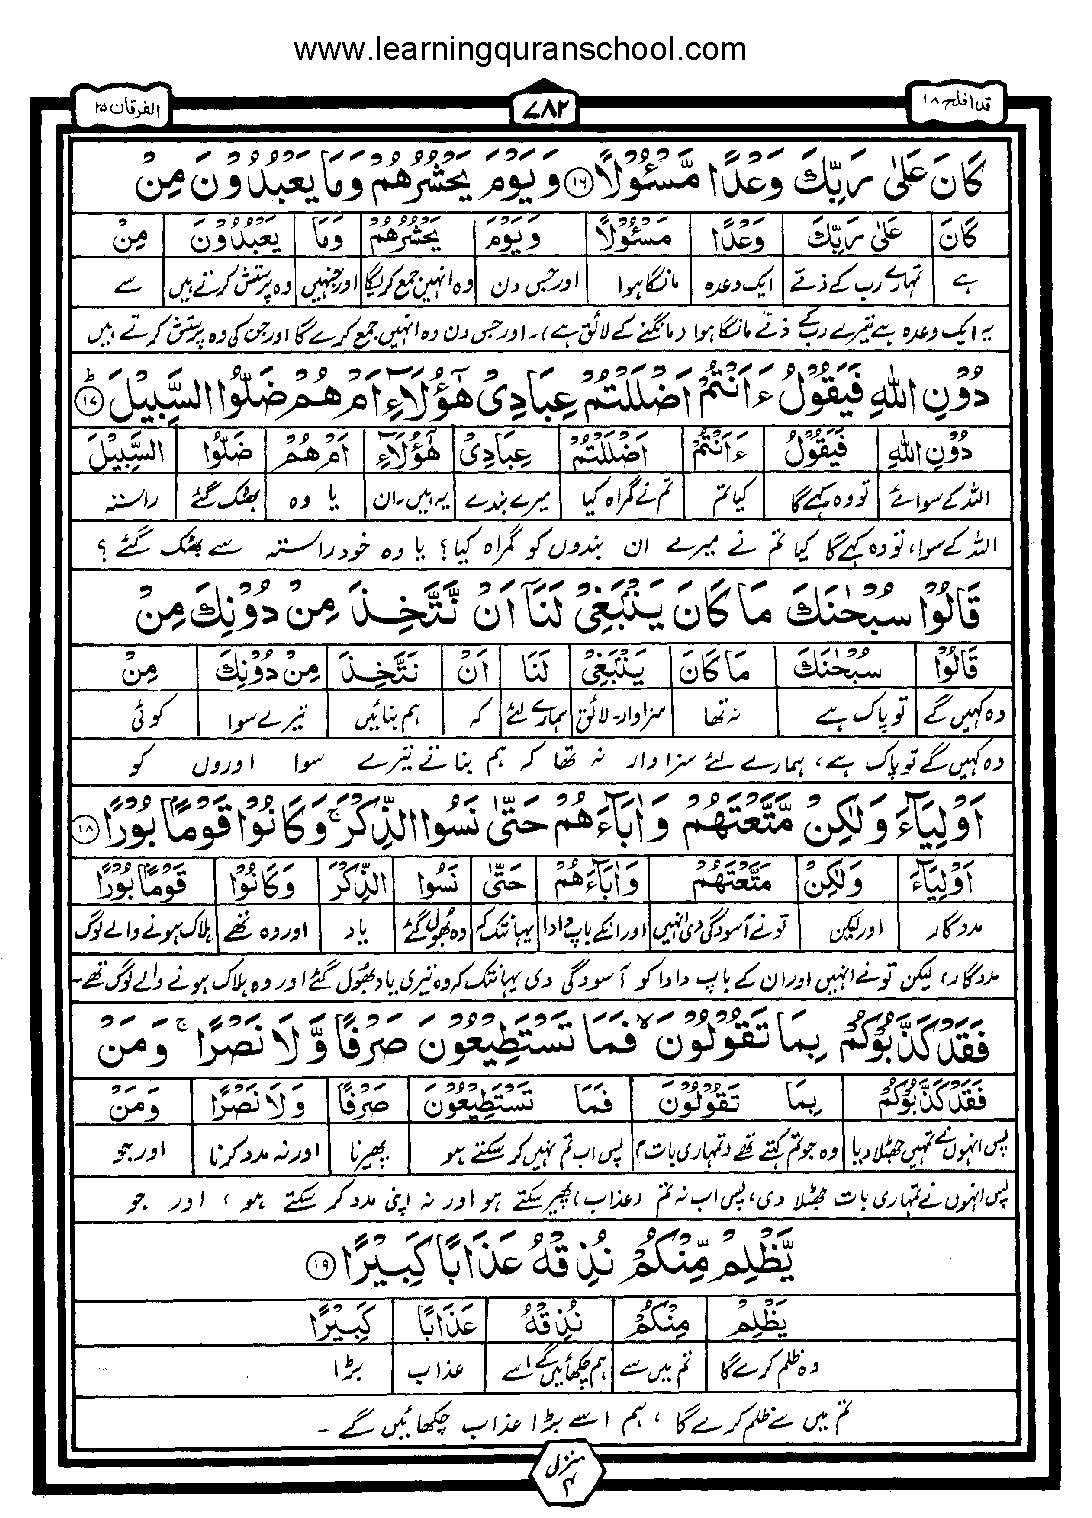 www.learningquranschool.com
قد افلح ۱۸
۷۸۲
الفرقان ۲۵
كَانَ عَلٰى رَبِّكَ وَعْدًا مَّسْـُٔوْلًا ۝۱۶ وَيَوْمَ يَحْشُرُهُمْ وَمَا يَعْبُدُوْنَ مِنْ
كَانَ عَلٰى رَبِّكَ وَعْدًا مَّسْـُٔوْلًا وَيَوْمَ يَحْشُرُهُمْ وَمَا يَعْبُدُوْنَ مِنْ
ہے تمہارے رب کے ذمّے ایک وعدہ مانگا ہوا اور جس دن وہ انہیں جمع کریگا اور جنہیں وہ پرستش کرتے ہیں سے
یہ ایک وعدہ ہے تیرے رب کے ذمّے مانگا ہوا (مانگنے کے لائق ہے)۔ اور جس دن وہ انہیں جمع کرے گا اور جن کی وہ پرستش کرتے ہیں
دُوْنِ اللّٰهِ فَيَقُوْلُ ءَاَنْتُمْ اَضْلَلْتُمْ عِبَادِيْ هٰٓؤُلَآءِ اَمْ هُمْ ضَلُّوا السَّبِيْلَ ۝۱۷ؕ
دُوْنِ اللّٰهِ فَيَقُوْلُ ءَاَنْتُمْ اَضْلَلْتُمْ عِبَادِيْ هٰٓؤُلَآءِ اَمْ هُمْ ضَلُّوا السَّبِيْلَ
اللہ کے سوائے تو وہ کہے گا کیا تم تم نے گمراہ کیا میرے بندے یہ ہیں۔ان یا وہ بھٹک گئے راستہ
اللہ کے سوا، تو وہ کہے گا کیا تم نے میرے ان بندوں کو گمراہ کیا؟ یا وہ خود راستہ سے بھٹک گئے؟
قَالُوْا سُبْحٰنَكَ مَا كَانَ يَنْۢبَغِيْ لَنَآ اَنْ نَّتَّخِذَ مِنْ دُوْنِكَ مِنْ
قَالُوْا سُبْحٰنَكَ مَا كَانَ يَنْۢبَغِيْ لَنَا اَنْ نَتَّخِذَ مِنْ دُوْنِكَ مِنْ
وہ کہیں گے تو پاک ہے نہ تھا سزاوار۔لائق ہمارے لئے کہ ہم بنائیں تیرے سوا کوئی
وہ کہیں گے تو پاک ہے، ہمارے لئے سزاوار نہ تھا کہ ہم بناتے تیرے سوا اوروں کو
اَوْلِيَآءَ وَلٰكِنْ مَّتَّعْتَهُمْ وَاٰبَآءَهُمْ حَتّٰى نَسُوا الذِّكْرَ ۚ وَكَانُوْا قَوْمًۢا بُوْرًا ۝۱۸
اَوْلِيَآءَ وَلٰكِنْ مَتَّعْتَهُمْ وَاٰبَآءَهُمْ حَتّٰى نَسُوا الذِّكْرَ وَكَانُوْا قَوْمًۢا بُوْرًا
مددگار اور لیکن تو نے آسودگی دی انہیں اور انکے باپ دادا یہانتک کہ وہ بھول گئے یاد اور وہ تھے ہلاک ہونے والے لوگ
مددگار، لیکن تو نے انہیں اور ان کے باپ دادا کو آسودگی دی یہانتک کہ وہ تیری یاد بھول گئے اور وہ ہلاک ہونے والے لوگ تھے۔
فَقَدْ كَذَّبُوْكُمْ بِمَا تَقُوْلُوْنَ ۙ فَمَا تَسْتَطِيْعُوْنَ صَرْفًا وَّلَا نَصْرًا ۚ وَمَنْ
فَقَدْ كَذَّبُوْكُمْ بِمَا تَقُوْلُوْنَ فَمَا تَسْتَطِيْعُوْنَ صَرْفًا وَلَا نَصْرًا وَمَنْ
پس انہوں نے تمہیں جھٹلا دیا وہ جو تم کہتے تھے (تمہاری بات) پس اب تم نہیں کر سکتے ہو پھیرنا اور نہ مدد کرنا اور جو
پس انہوں نے تمہاری بات جھٹلا دی، پس اب نہ تم (عذاب) پھیر سکتے ہو اور نہ اپنی مدد کر سکتے ہو، اور جو
يَّظْلِمْ مِّنْكُمْ نُذِقْهُ عَذَابًا كَبِيْرًا ۝۱۹
يَظْلِمْ مِنْكُمْ نُذِقْهُ عَذَابًا كَبِيْرًا
وہ ظلم کرے گا تم میں سے ہم چکھائیں گے اسے عذاب بڑا
تم میں سے ظلم کرے گا، ہم اسے بڑا عذاب چکھائیں گے۔
منزل ۴